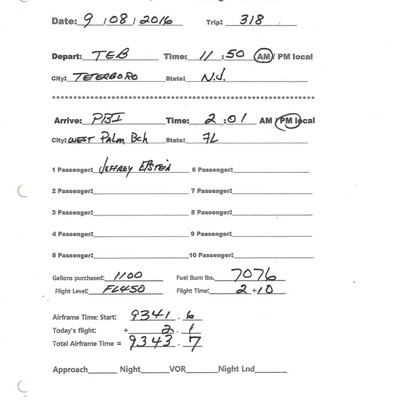 Date: 9/08/2016 Trip: 318
Depart: TEB Time: 11:50 AM / PM local
City: TETERBORO State: N.J.
Arrive: PBI Time: 2:01 AM / PM local
City: WEST Palm Bch State: FL
1 Passenger: JEFFREY EPSTEIN 6 Passenger:
2 Passenger: 7 Passenger:
3 Passenger: 8 Passenger:
4 Passenger: 9 Passenger:
5 Passenger: 10 Passenger:
Gallons purchased: 1100 Fuel Burn lbs. 7076
Flight Level: FL450 Flight Time: 2+10
Airframe Time: Start: 9341.6
Today's flight: + 2.1
Total Airframe Time = 9343.7
Approach Night VOR Night Lnd